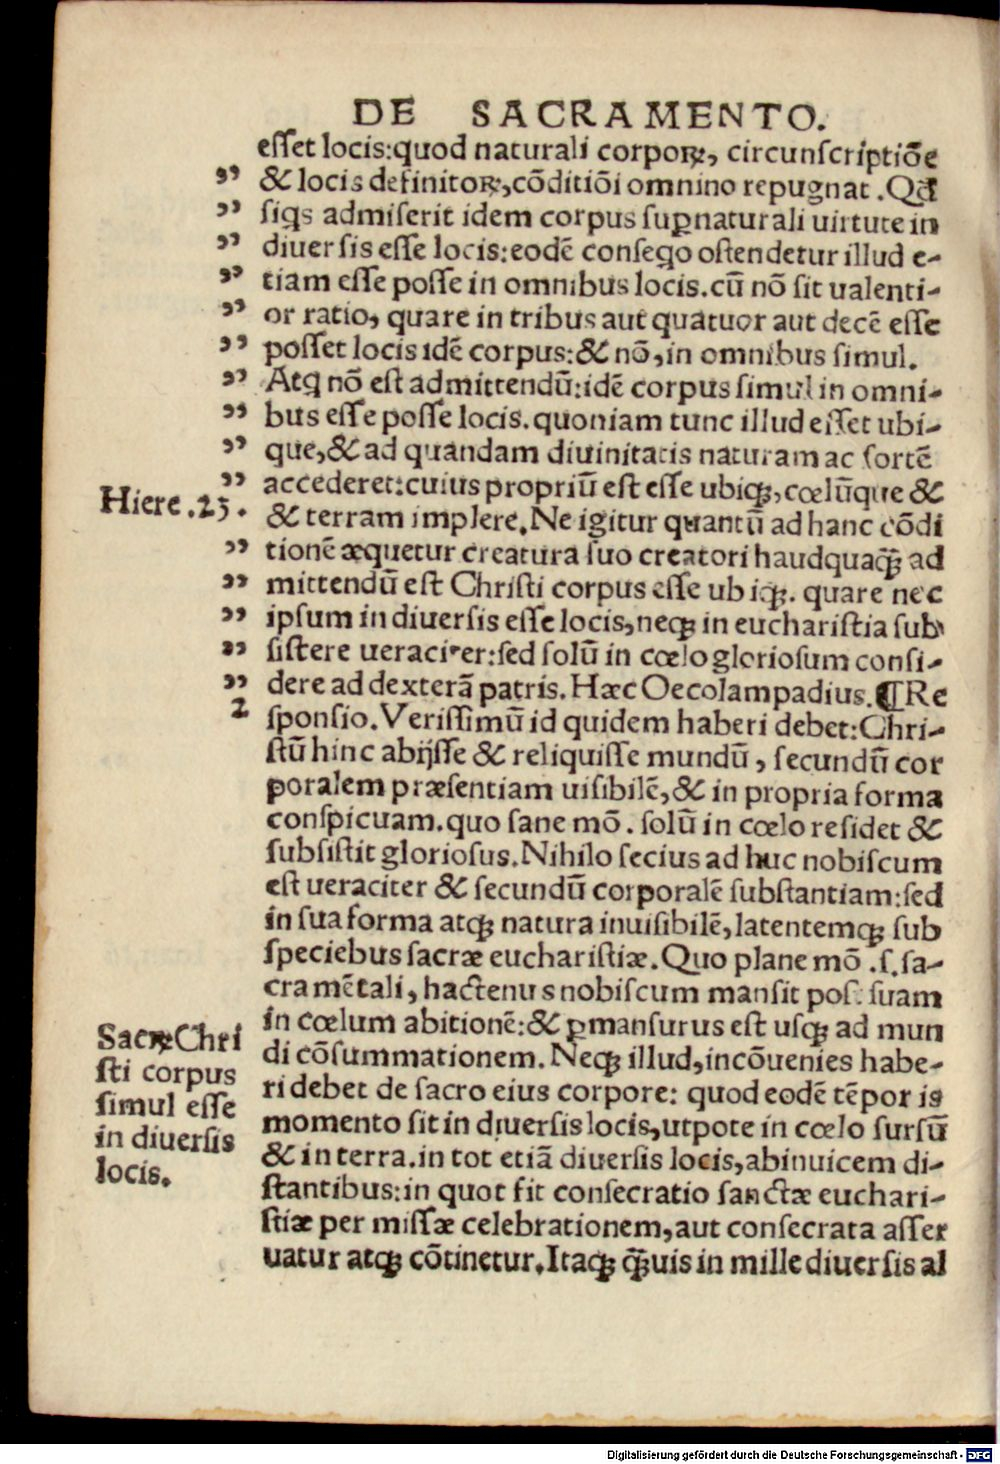 DE SACRAMENTO.
eſſet locis:quod naturali corporꝝ, circunſcriptiõe
& locis definitorꝝ,cõditiõi omnino repugnat. Qđ
ſiqs admiſerit idem corpus ſuꝑnaturali uirtute in
diuerſis eſſe locis:eodẽ conſeqo oſtendetur illud e-
tiam eſſe poſſe in omnibus locis.cũ nõ ſit ualenti-
or ratio, quare in tribus aut quatuor aut decẽ eſſe
poſſet locis idẽ corpus:& nõ,in omnibus ſimul.
Atq nõ eſt admittendũ:idẽ corpus ſimul in omni-
bus eſſe poſſe locis.quoniam tunc illud eſſet ubi-
que,& ad quandam diuinitatis naturam ac ſortẽ
accederet:cuius propriũ eſt eſſe ubiqꝫ,cœlũque &
Hiere.23.
& terram implere.Ne igitur quantũ ad hanc cõdi
tionẽ æquetur creatura ſuo creatori haudquaq̃ꝫ ad
mittendũ eſt Chriſti corpus eſſe ubiqꝫ. quare nec
ipſum in diuerſis eſſe locis,neqꝫ in euchariſtia ſub
ſiſtere ueraciter:ſed ſolũ in cœlo glorioſum conſi-
dere ad dexterã patris.Hæc Oecolampadius.¶Re
2
ſponſio.Veriſſimũ id quidem haberi debet:Chri-
ſtũ hinc abijſſe & reliquiſſe mundũ, ſecundũ cor
poralem præſentiam uiſibilẽ,& in propria forma
conſpicuam.quo ſane mõ. ſolũ in cœlo reſidet &
ſubſiſtit glorioſus.Nihilo ſecius ad huc nobiſcum
eſt ueraciter & ſecundũ corporalẽ ſubſtantiam:ſed
in ſua forma atqꝫ natura inuiſibilẽ,latentemqꝫ ſub
ſpeciebus ſacræ euchariſtiæ.Quo plane mõ .ſ.ſa-
cramẽtali, hactenus nobiſcum manſit poſ. ſuam
in cœlum abitionẽ:& ꝑmanſurus eſt uſqꝫ ad mun
Sacrꝝ Chri
ſti corpus
ſimul eſſe
in diuerſis
locis.
di cõſummationem. Neqꝫ illud,incõueniẽs habe-
ri debet de ſacro eius corpore: quod eodẽ tẽporis
momento ſit in diuerſis locis,utpote in cœlo ſurſũ
& in terra.in tot etiã diuerſis locis,abinuicem di-
ſtantibus:in quot fit conſecratio ſanctæ euchari-
ſtiæ per miſſæ celebrationem,aut conſecrata aſſer
uatur atqꝫ cõtinetur.Itaqꝫ q̃ꝫuis in mille diuerſis al
Digitalisierung gefördert durch die Deutsche Forschungsgemeinschaft - DFG